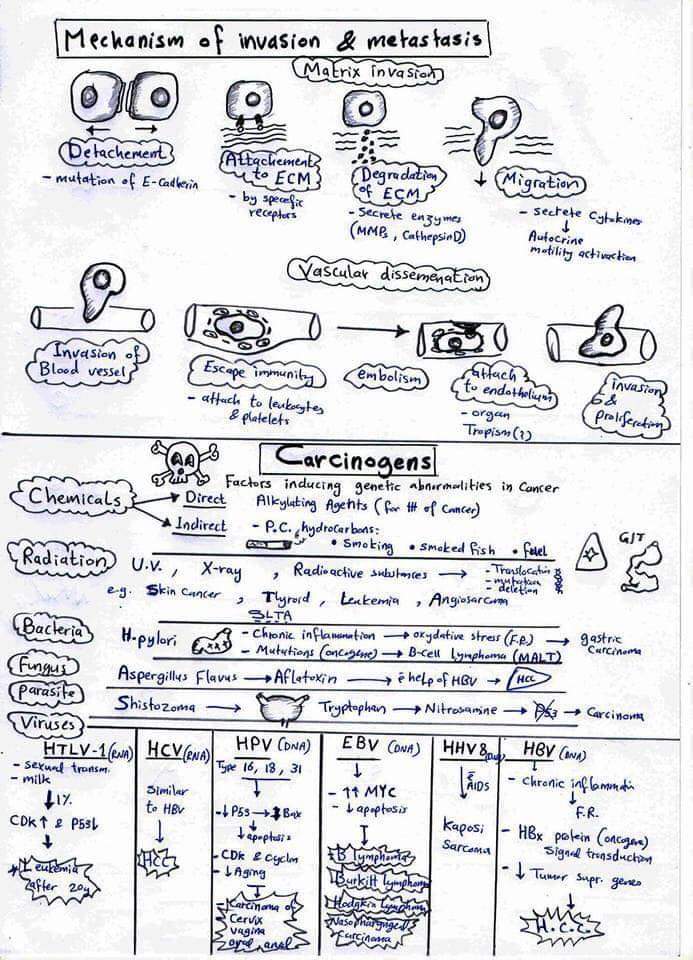 Mechanism of invasion & metastasis
Matrix invasion
Detachement
- mutation of E-Cadherin
Attachement
to ECM
- by specefic
receptors
Degradation
of ECM
- Secrete enzymes
(MMPs, CathepsinD)
Migration
- secrete Cytokines
↓
Autocrine
motility activaction
Vascular dissemenation
Invasion of
Blood vessel
Escape immunity
- attach to leukocytes
& platelets
embolism
attach
to endothelium
- organ
Tropism(?)
invasion
&
proliferation
Carcinogens
Factors inducing genetic abnormalities in Cancer
Chemicals
→ Direct Alkylating Agents (for ttt of Cancer)
→ Indirect - P.C. hydrocarbons:
• Smoking • smoked fish • fuel
GIT
Radiation
U.V., X-ray, Radioactive substances →
- Translocation
- mutation
- deletion
e.g. Skin cancer, Thyroid, Leukemia, Angiosarcoma
SLTA
Bacteria
H.pylori
- Chronic inflammation → oxydative stress (F.R.) → gastric
Carcinoma
- Mutations (oncogene) → B-cell lymphoma (MALT)
Fungus
Aspergillus Flavus → Aflatoxin → c̄ help of HBV → HCC
Parasite
Shistozoma → Tryptophan → Nitrosamine → P53 → Carcinoma
Viruses
HTLV-1 (RNA)
- sexual transm.
- milk
↓ 1%
CDK↑ & P53↓
↓
Leukemia
after 20y
HCV (RNA)
Similar
to HBV
↓
HCC
HPV (DNA)
Type 16, 18, 31
- ↓ P53 → ↓ Bax
↓ apoptosis
- CDK & Cyclin
- ↓ Aging
Carcinoma of
Cervix
vagina
oral, anal
EBV (DNA)
↓
- ↑↑ MYC
- ↓ apoptosis
B lymphoma
Burkitt lymphoma
Hodgkin lymphoma
Nasopharynged
Carcinoma
HHV8 (DNA)
↓ c̄ AIDS
Kaposi
Sarcoma
HBV (DNA)
- Chronic inflammation
↓
F.R.
- HBx protein (oncogene)
Signal transduction
- ↓ Tumor supr. genes
↓
H.C.C.